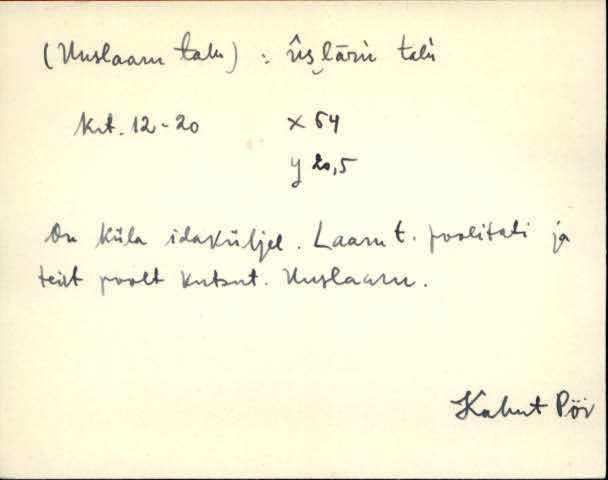 (Uuslaaru talu) : ūs̬lāru talu
Krt. 12-20 x 64
y 20,5
On küla idaküljel. Laaru t. poolitati ja
teist poolt kutsut. Uuslaaru.
Kahut Pöi